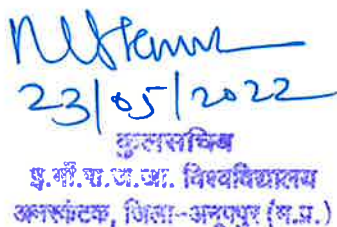 23/05/2022
कुलसचिव
इ.गाँ.रा.ज.जा. विश्वविद्यालय
अमरकंटक, जिला-अनूपपुर (म.प्र.)